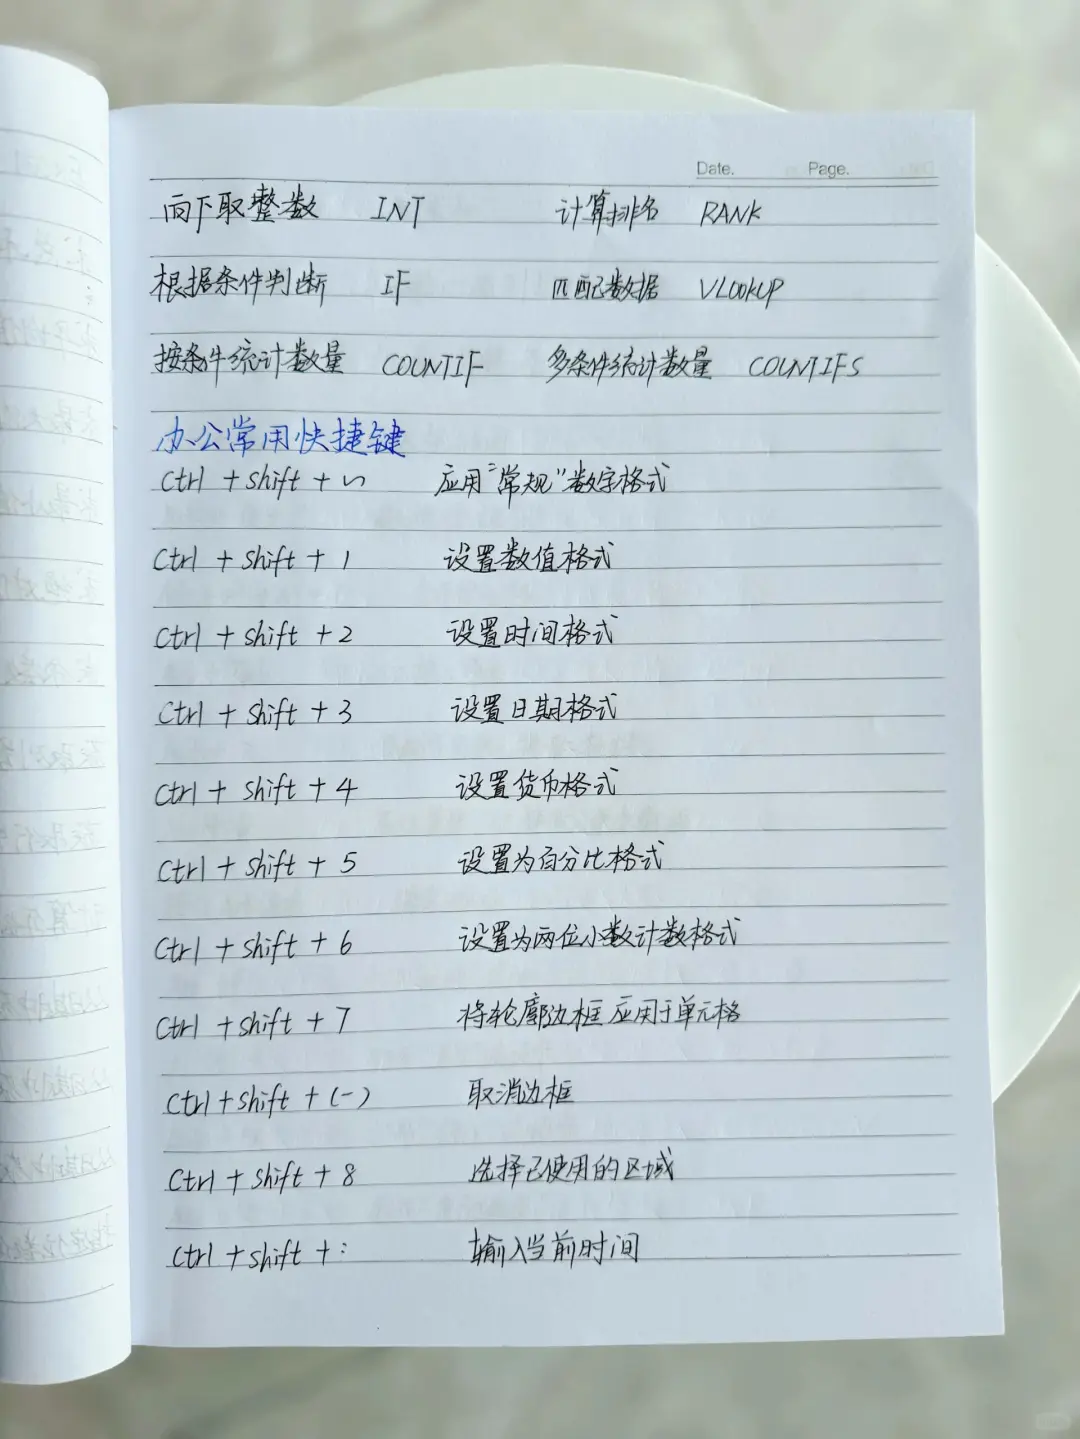 Date. Page.
向下取整数 INT 计算排名 RANK
根据条件判断 IF 匹配数据 VLOOKUP
按条件统计数量 COUNTIF 多条件统计数量 COUNTIFS
办公常用快捷键
Ctrl + shift + ~ 应用“常规”数字格式
Ctrl + shift + 1 设置数值格式
Ctrl + shift + 2 设置时间格式
Ctrl + shift + 3 设置日期格式
Ctrl + shift + 4 设置货币格式
Ctrl + shift + 5 设置为百分比格式
Ctrl + shift + 6 设置为两位小数计数格式
Ctrl + shift + 7 将轮廓边框应用于单元格
Ctrl + shift + (-) 取消边框
Ctrl + shift + 8 选择已使用的区域
Ctrl + shift + : 输入当前时间